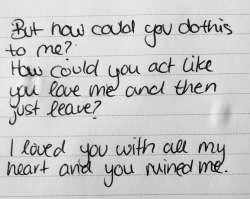 But how could you do this
to me?
How could you act like
you love me and then
just leave?
I loved you with all my
heart and you ruined me.